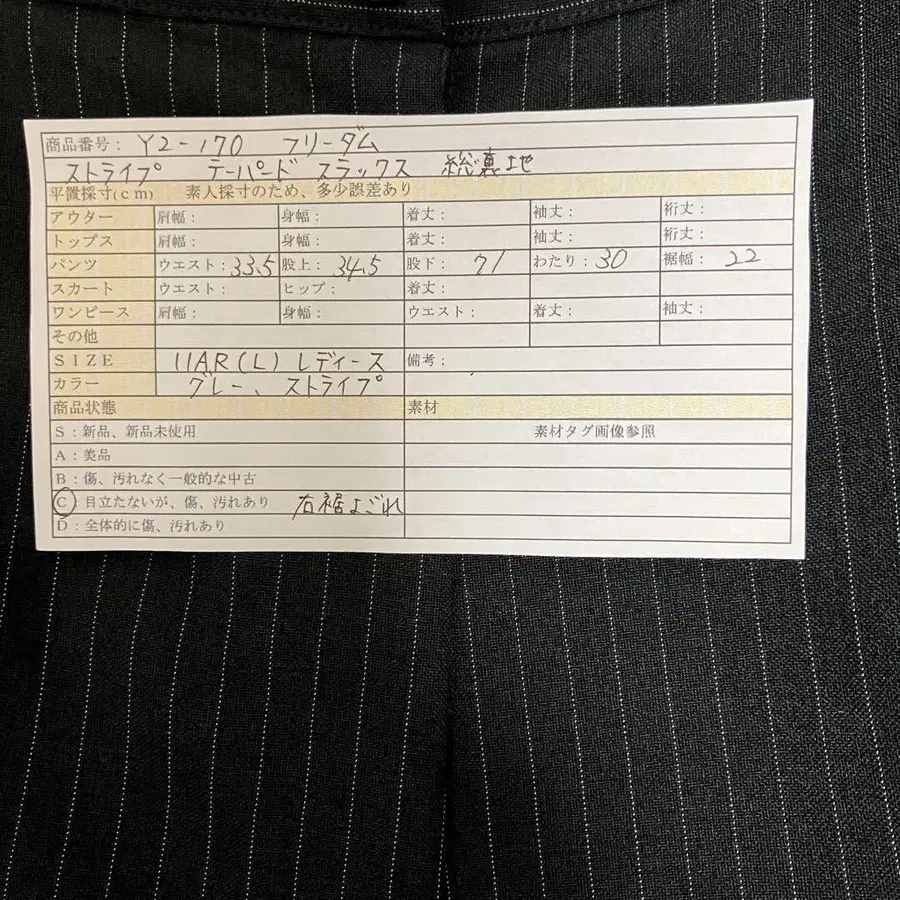 商品番号： Y2-170 フリーダム
ストライプ テーパード スラックス 総裏地
平置採寸(cm) 素人採寸のため、多少誤差あり
アウター 肩幅： 身幅： 着丈： 袖丈： 裄丈：
トップス 肩幅： 身幅： 着丈： 袖丈： 裄丈：
パンツ ウエスト：33.5 股上：34.5 股下： 71 わたり：30 裾幅： 22
スカート ウエスト： ヒップ： 着丈：
ワンピース 肩幅： 身幅： ウエスト： 着丈： 袖丈：
その他
SIZE 11AR(L) レディース 備考：
カラー グレー、ストライプ
商品状態 素材
S：新品、新品未使用 素材タグ画像参照
A：美品
B：傷、汚れなく一般的な中古
C 目立たないが、傷、汚れあり 右裾よごれ
D：全体的に傷、汚れあり